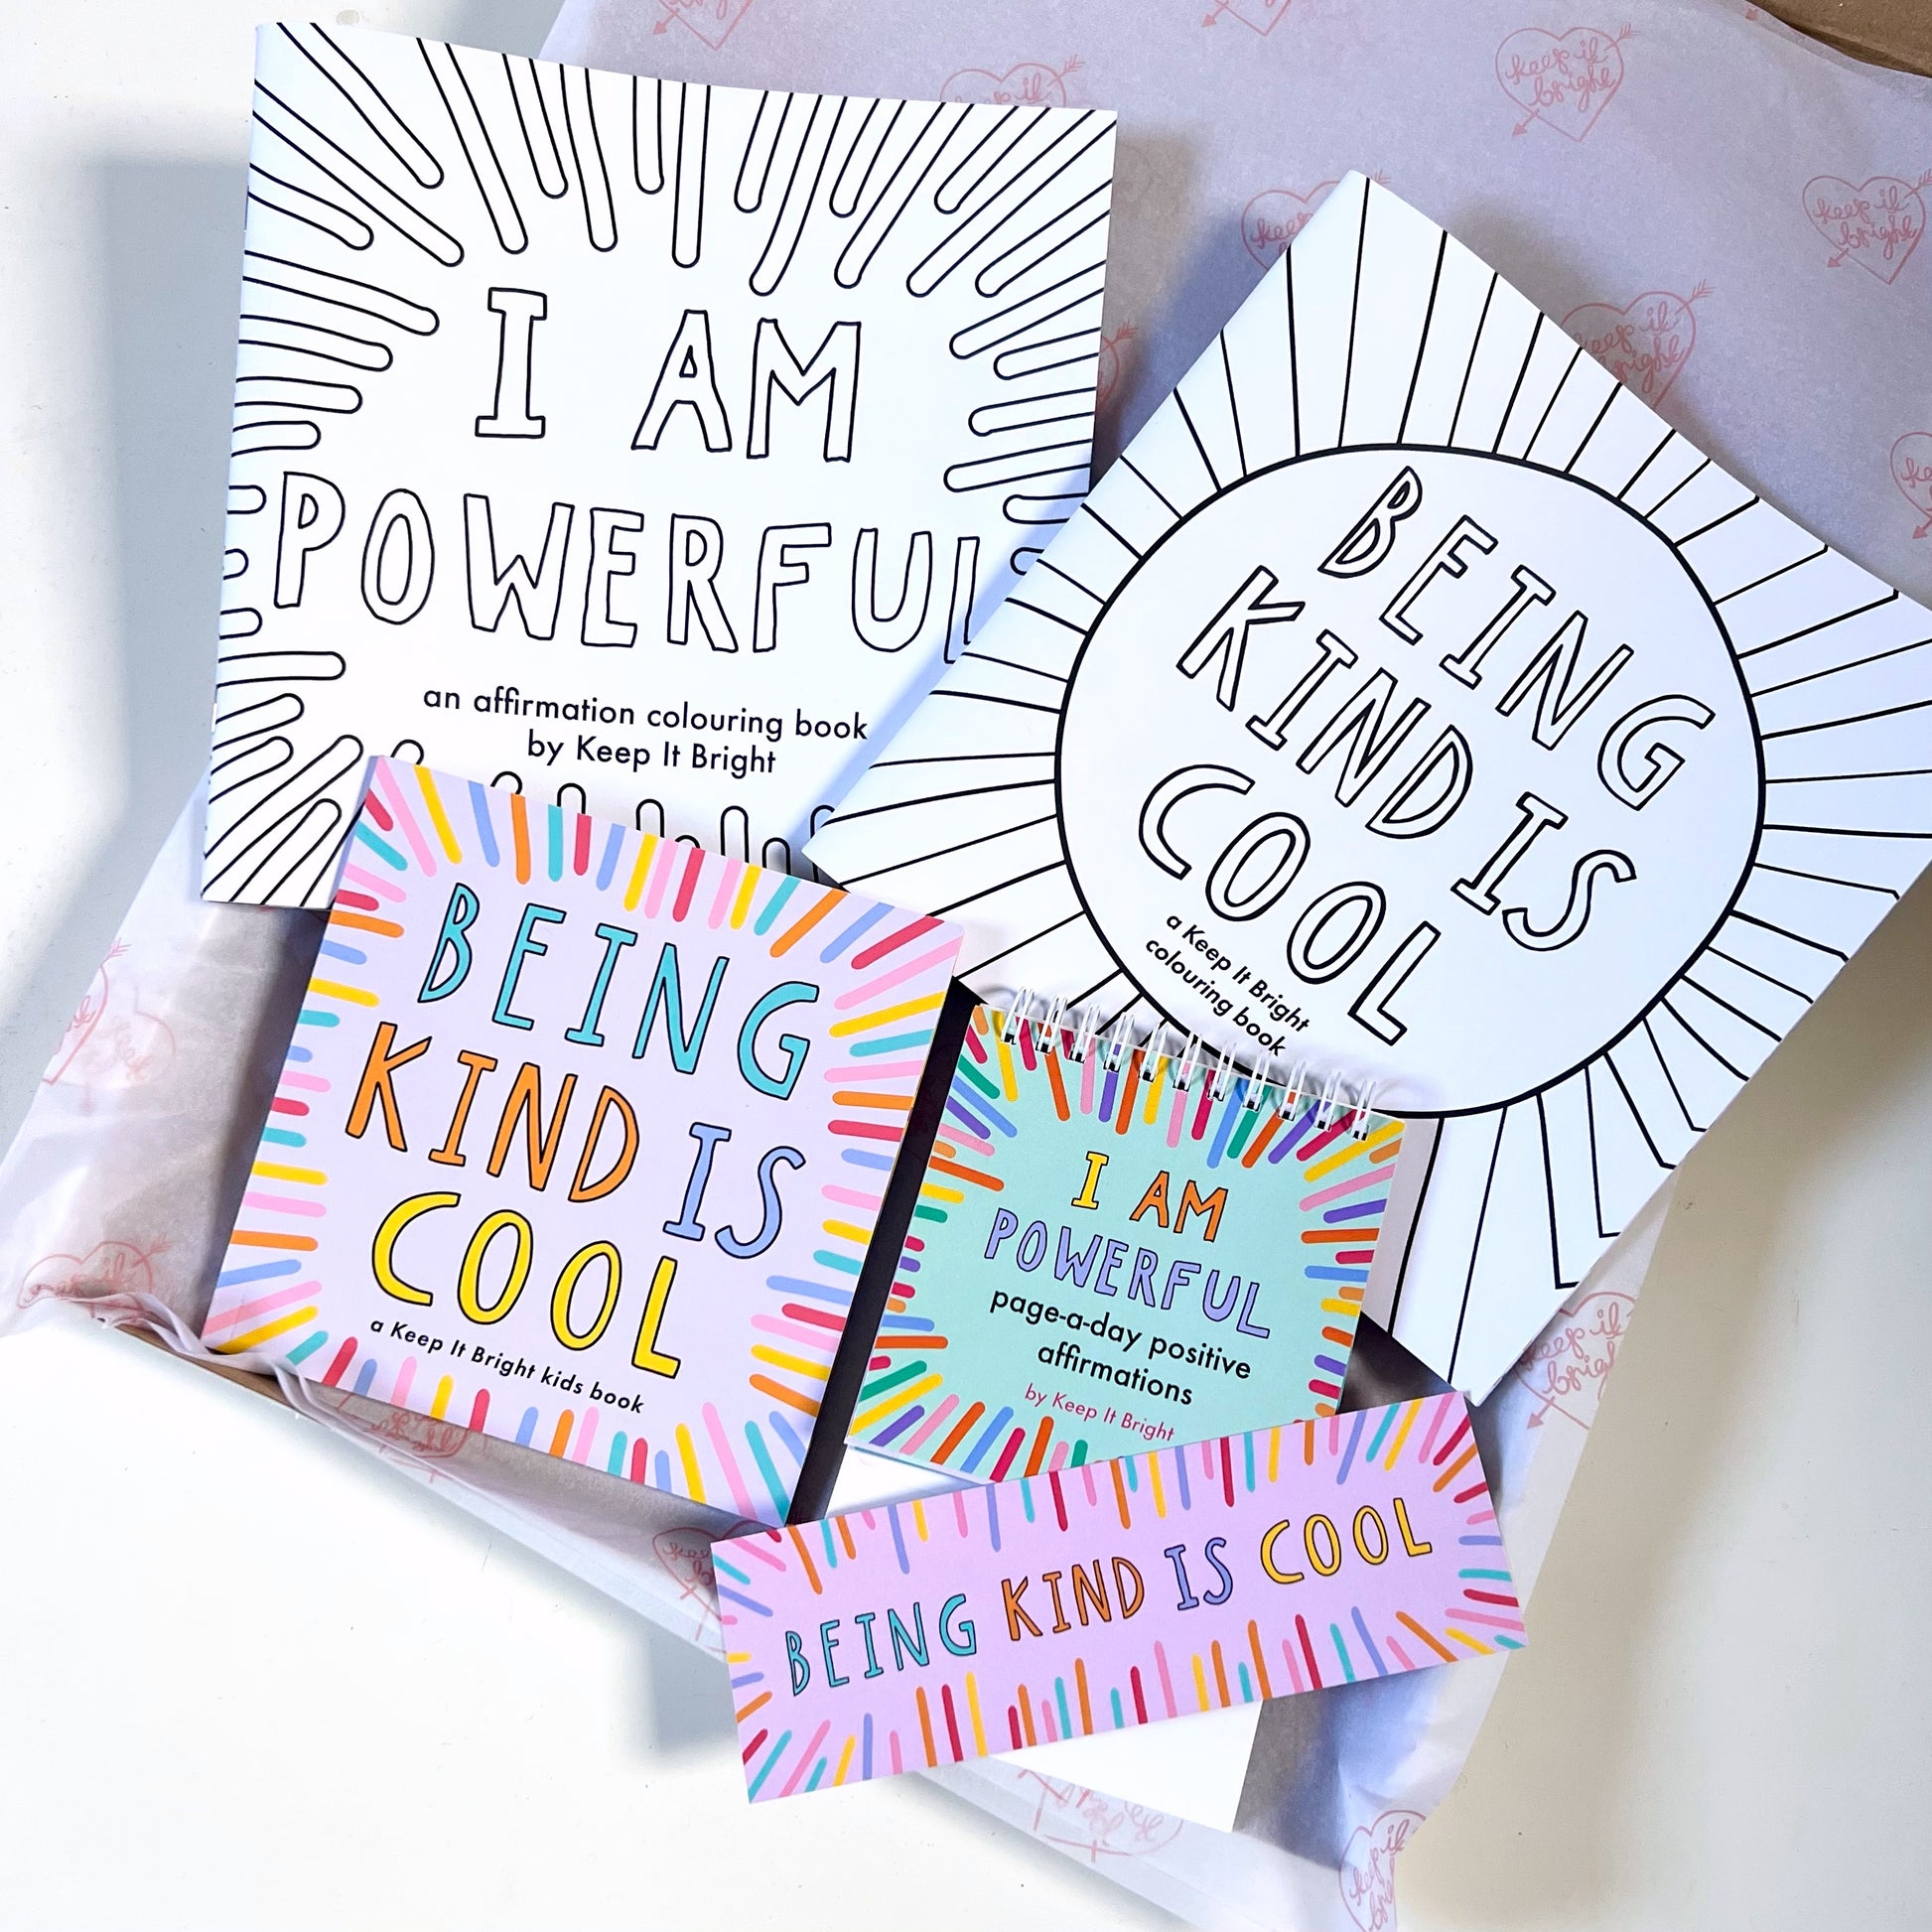 I AM
POWERFUL
an affirmation colouring book
by Keep It Bright
BEING
KIND IS
COOL
a Keep It Bright
colouring book
BEING
KIND IS
COOL
a Keep It Bright kids book
I AM
POWERFUL
page-a-day positive
affirmations
by Keep It Bright
BEING KIND IS COOL
keep it
bright
keep it
bright
keep it
bright
keep it
bright